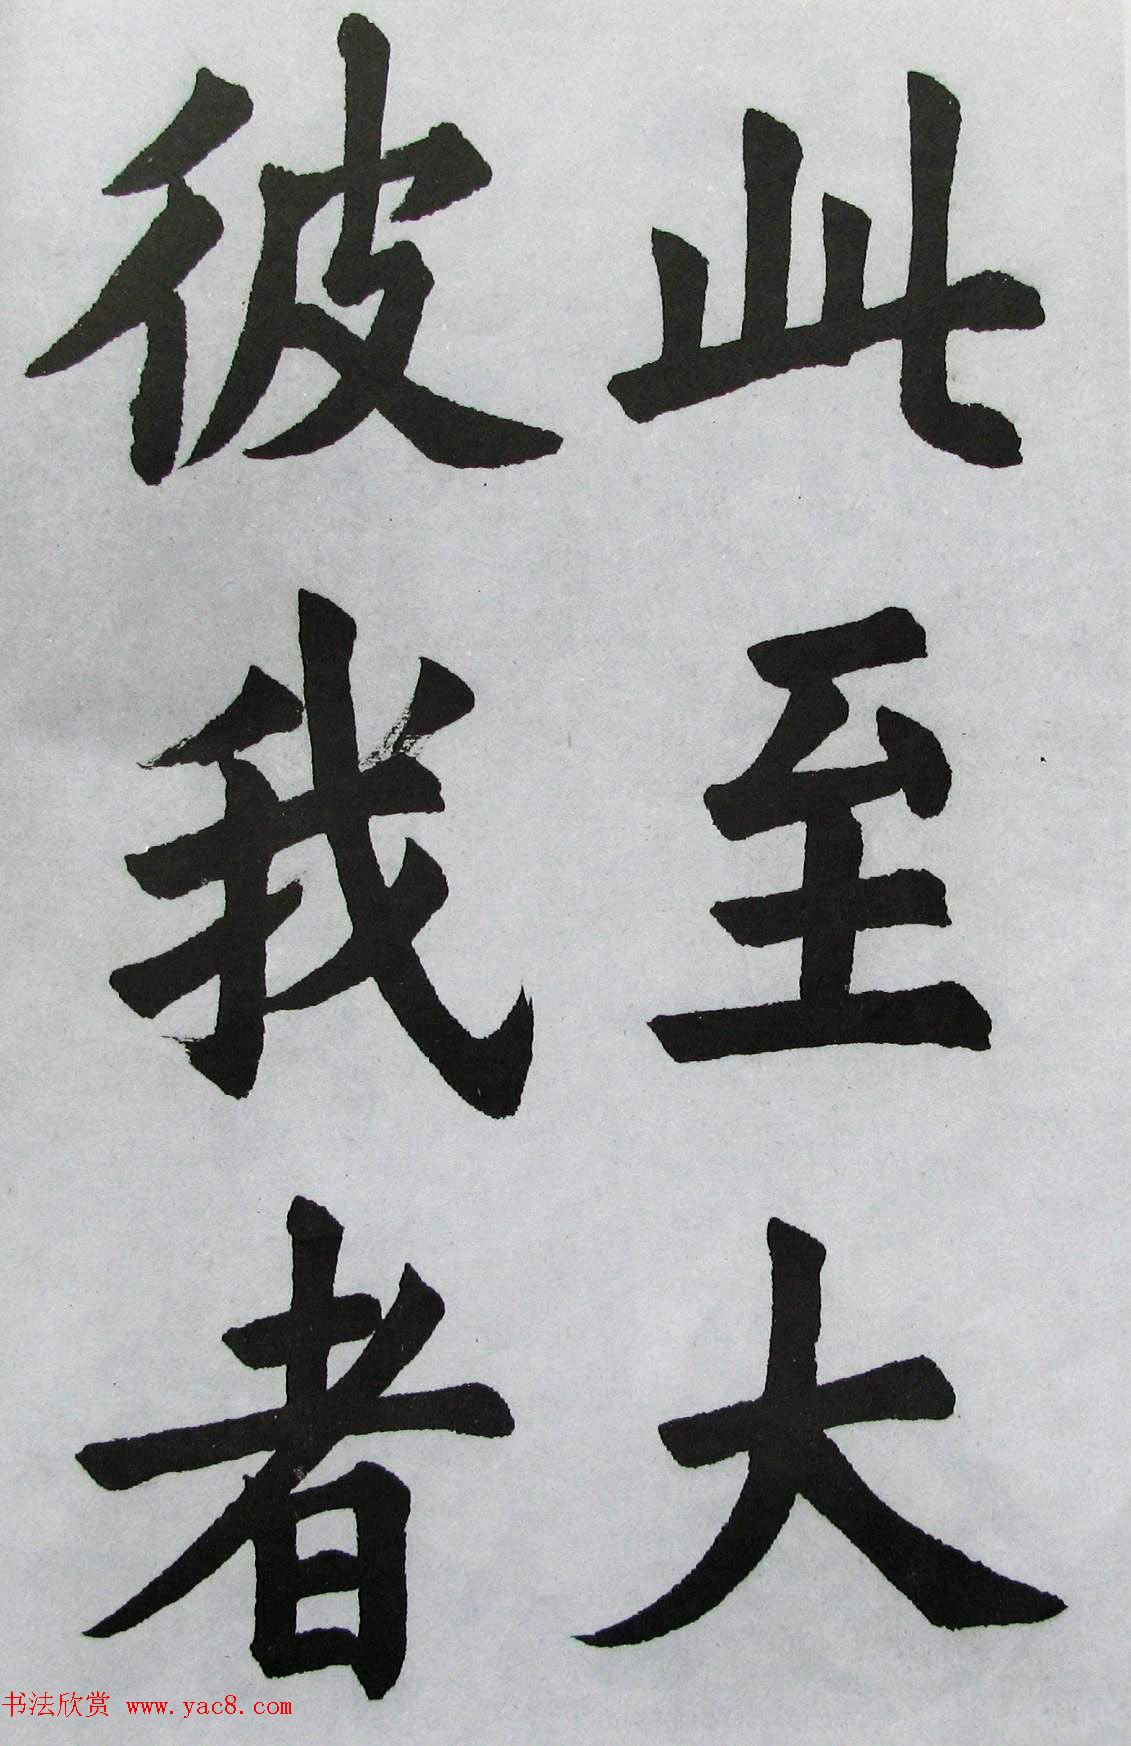 此至大
彼我者
书法欣赏 www.yac8.com